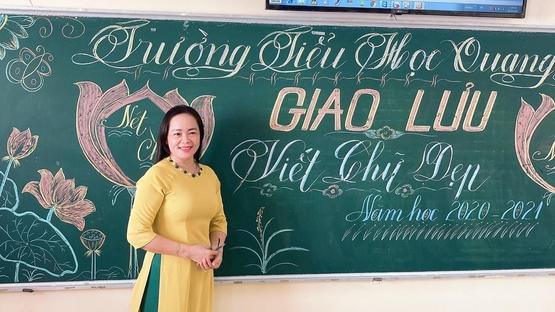 Trường Tiểu Học Quang
GIAO LƯU
Nét
Viết Chữ Đẹp
Năm học 2020-2021